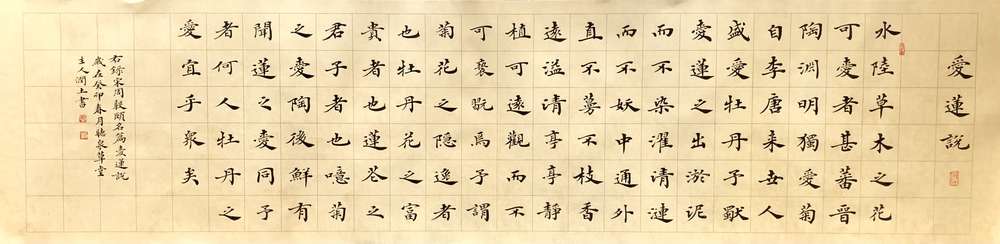 愛蓮説
水陸草木之花
可愛者甚蕃晉
陶淵明獨愛菊
自李唐來世人
盛愛牡丹予獨
愛蓮之出淤泥
而不染濯清漣
而不妖中通外
直不蔓不枝香
遠溢清亭亭靜
植可遠觀而不
可褻翫焉予謂
菊花之隱逸者
也牡丹花之富
貴者也蓮花之
君子者也噫菊
之愛陶後鮮有
聞蓮之愛同予
者何人牡丹之
愛宜乎眾矣
右錄宋周敦頤名篇愛蓮説
歲在癸卯春月聽泉草堂
主人潤土書